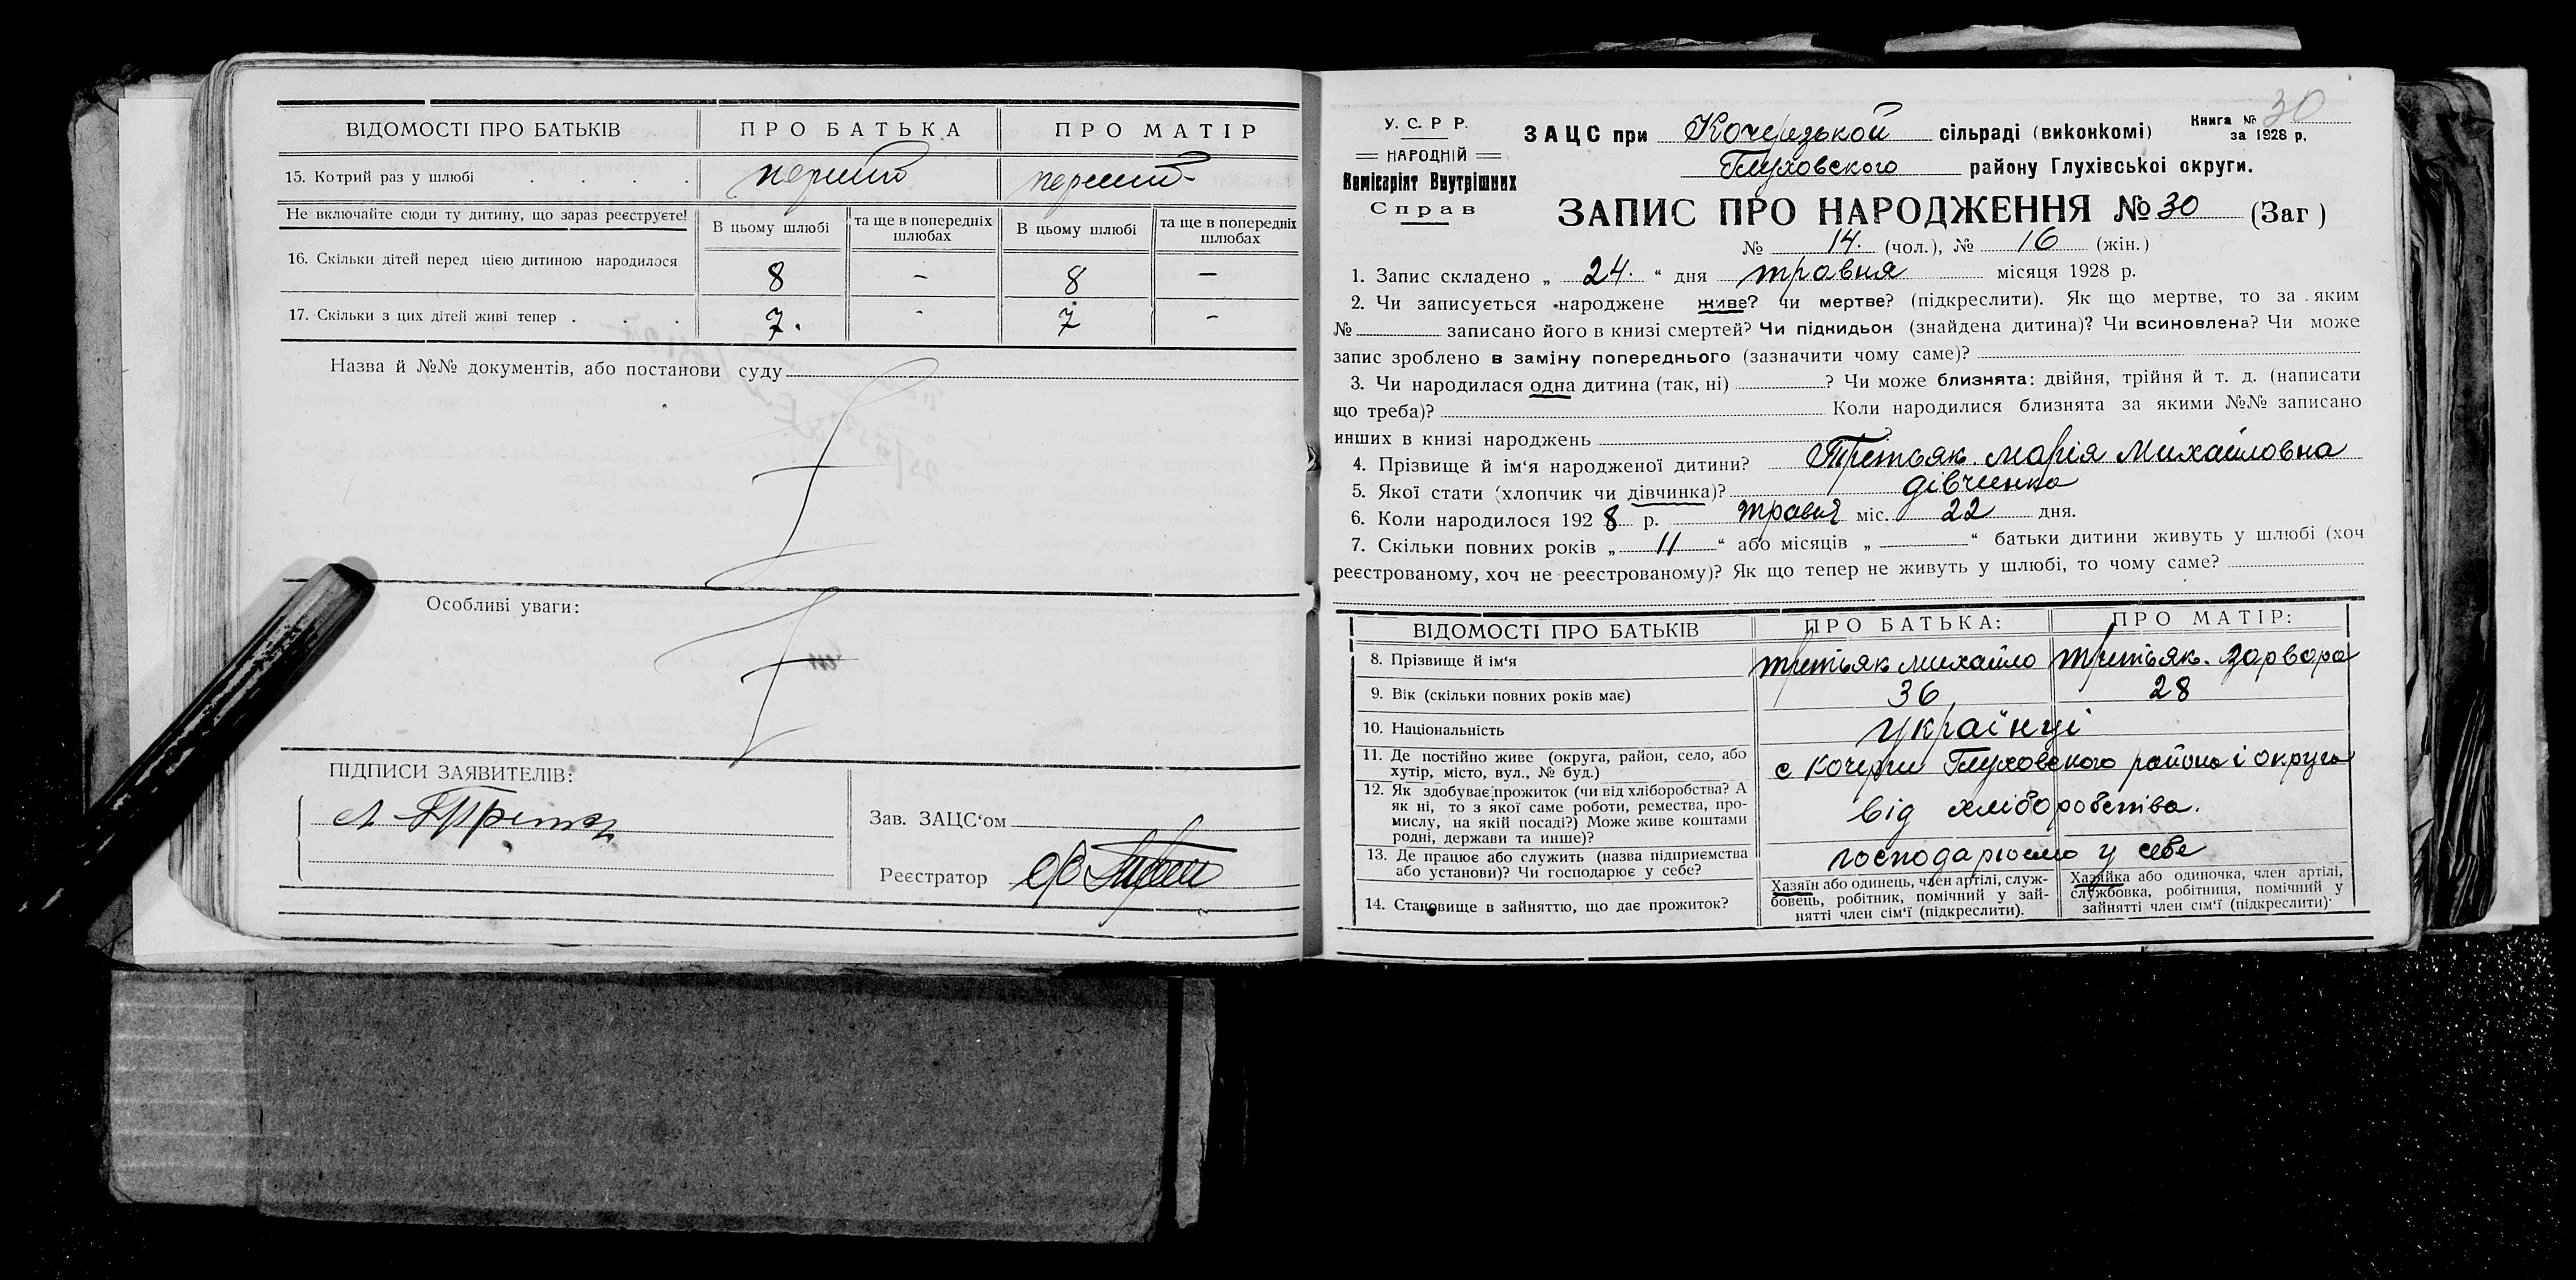 ВІДОМОСТІ ПРО БАТЬКІВ ПРО БАТЬКА ПРО МАТІР
15. Котрий раз у шлюбі перший перший
Не включайте сюди ту дитину, що зараз реєструєте! В цьому шлюбі та ще в попередніх шлюбах В цьому шлюбі та ще в попередніх шлюбах
16. Скільки дітей перед цією дитиною народилося 8 - 8 -
17. Скільки з цих дітей живі тепер 7. - 7 -
Назва й №№ документів, або постанови суду
Особливі уваги:
ПІДПИСИ ЗАЯВИТЕЛІВ:
Зав. ЗАЦС‘ом
Реєстратор
У. С. Р. Р.
НАРОДНІЙ
Комісаріят Внутрішних
Справ
30
Книга №
за 1928 р.
ЗАЦС при Кочерзької сільраді (виконкомі)
Глуховского району Глухівської округи.
ЗАПИС ПРО НАРОДЖЕННЯ № 30 (Заг)
№ 14. (чол.), № 16 (жін.)
1. Запис складено „ 24. “ дня травня місяця 1928 р.
2. Чи записується народжене живе? чи мертве? (підкреслити). Як що мертве, то за яким
№ записано його в книзі смертей? Чи підкидьок (знайдена дитина)? Чи всиновлена? Чи може
запис зроблено в заміну попереднього (зазначити чому саме)?
3. Чи народилася одна дитина (так, ні) ? Чи може близнята: двійня, трійня й т. д. (написати
що треба)? Коли народилися близнята за якими №№ записано
инших в книзі народжень
4. Прізвище й ім‘я народженої дитини? Третьяк Марія Михайловна
5. Якої стати (хлопчик чи дівчинка)? дівчинка
6. Коли народилося 1928 р. травня міс. 22 дня.
7. Скільки повних років „ 11 “ або місяців „ “ батьки дитини живуть у шлюбі (хоч
реєстрованому, хоч не реєстрованому)? Як що тепер не живуть у шлюбі, то чому саме?
ВІДОМОСТІ ПРО БАТЬКІВ ПРО БАТЬКА: ПРО МАТІР:
8. Прізвище й ім‘я Третьяк Михайло Третьяк
9. Вік (скільки повних років має) 36 28
10. Національність українці
11. Де постійно живе (округа, район, село, або
хутір, місто, вул., № буд.) с Кочерги Глуховского района і округа
12. Як здобуває прожиток (чи від хліборобства? А
як ні, то з якої саме роботи, ремества, про-
мислу, на якій посаді?) Може живе коштами
родні, держави та инше)? від хліборобства.
13. Де працює або служить (назва підприємства
або установи)? Чи господарює у себе? господарюємо у себе
14. Становище в зайняттю, що дає прожиток?
Хазяїн або одинець, член артілі, служ-
бовець, робітник, помічний у зай-
нятті член сім‘ї (підкреслити).
Хазяйка або одиночка, член артілі,
службовка, робітниця, помічний у
зайнятті член сім‘ї (підкреслити).